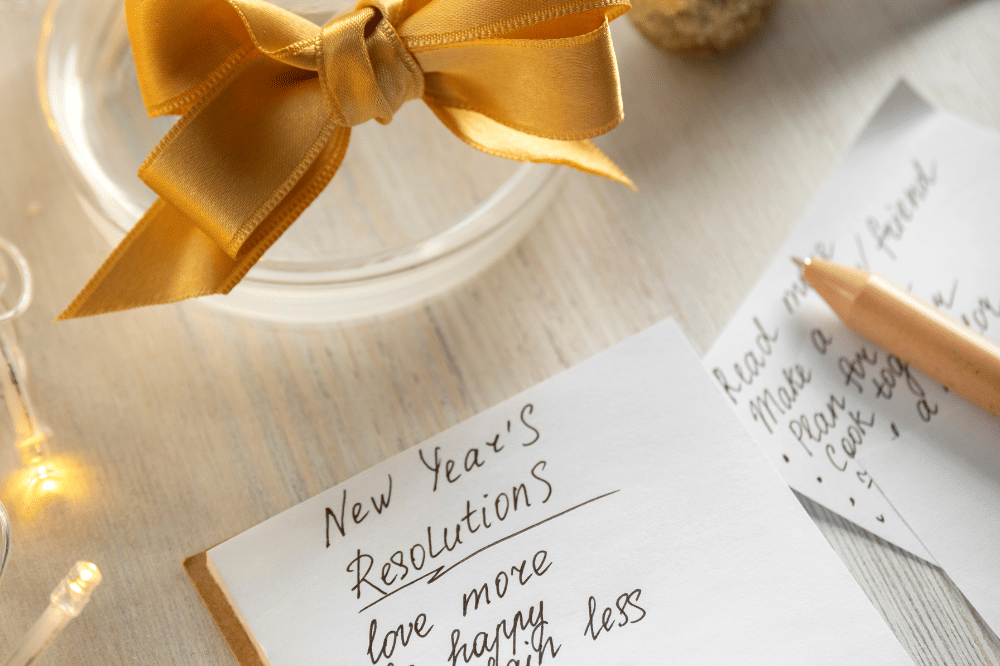 New Year's
Resolutions
love more
happy
less
Read
Make a / friend
Plan for
Cook
a